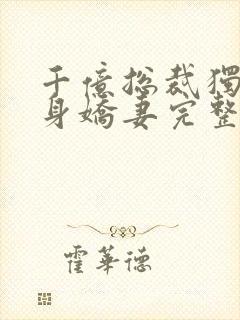 千億總裁獨
身嬌妻完整
霍華德